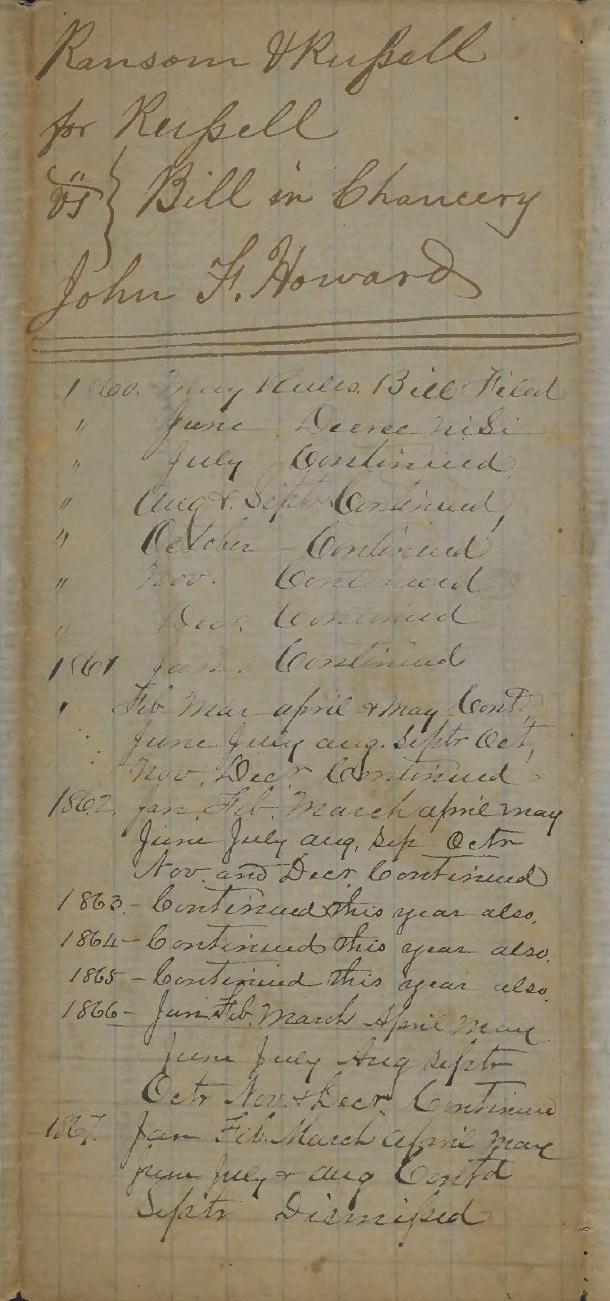 Ransom & Russell
for Russell
vs } Bill in Chancery
John F. Howard
1860. May Rules. Bill Filed
" June Decree NiSi
" July Continued
" Aug & Septr Continued
" October - Continued
" Nov. Continued
" Decr. Continued
1861 Jan. Continued
" Feb Mar april & may Contd
June July aug. Septr Oct,
Nov, Decr Continued
1862. Jan. Feb. March april may
June July aug, Sep Octr
Nov. and Decr Continued
1863 - Continued this year also.
1864 - Continued this year also.
1865 - Continued this year also.
1866 - Jan. Feb. March April May
June July Aug Septr
Octr Nov. & Decr. Continued
1867. Jan Feb. March april May
june July & aug Contd
Septr Dismissed